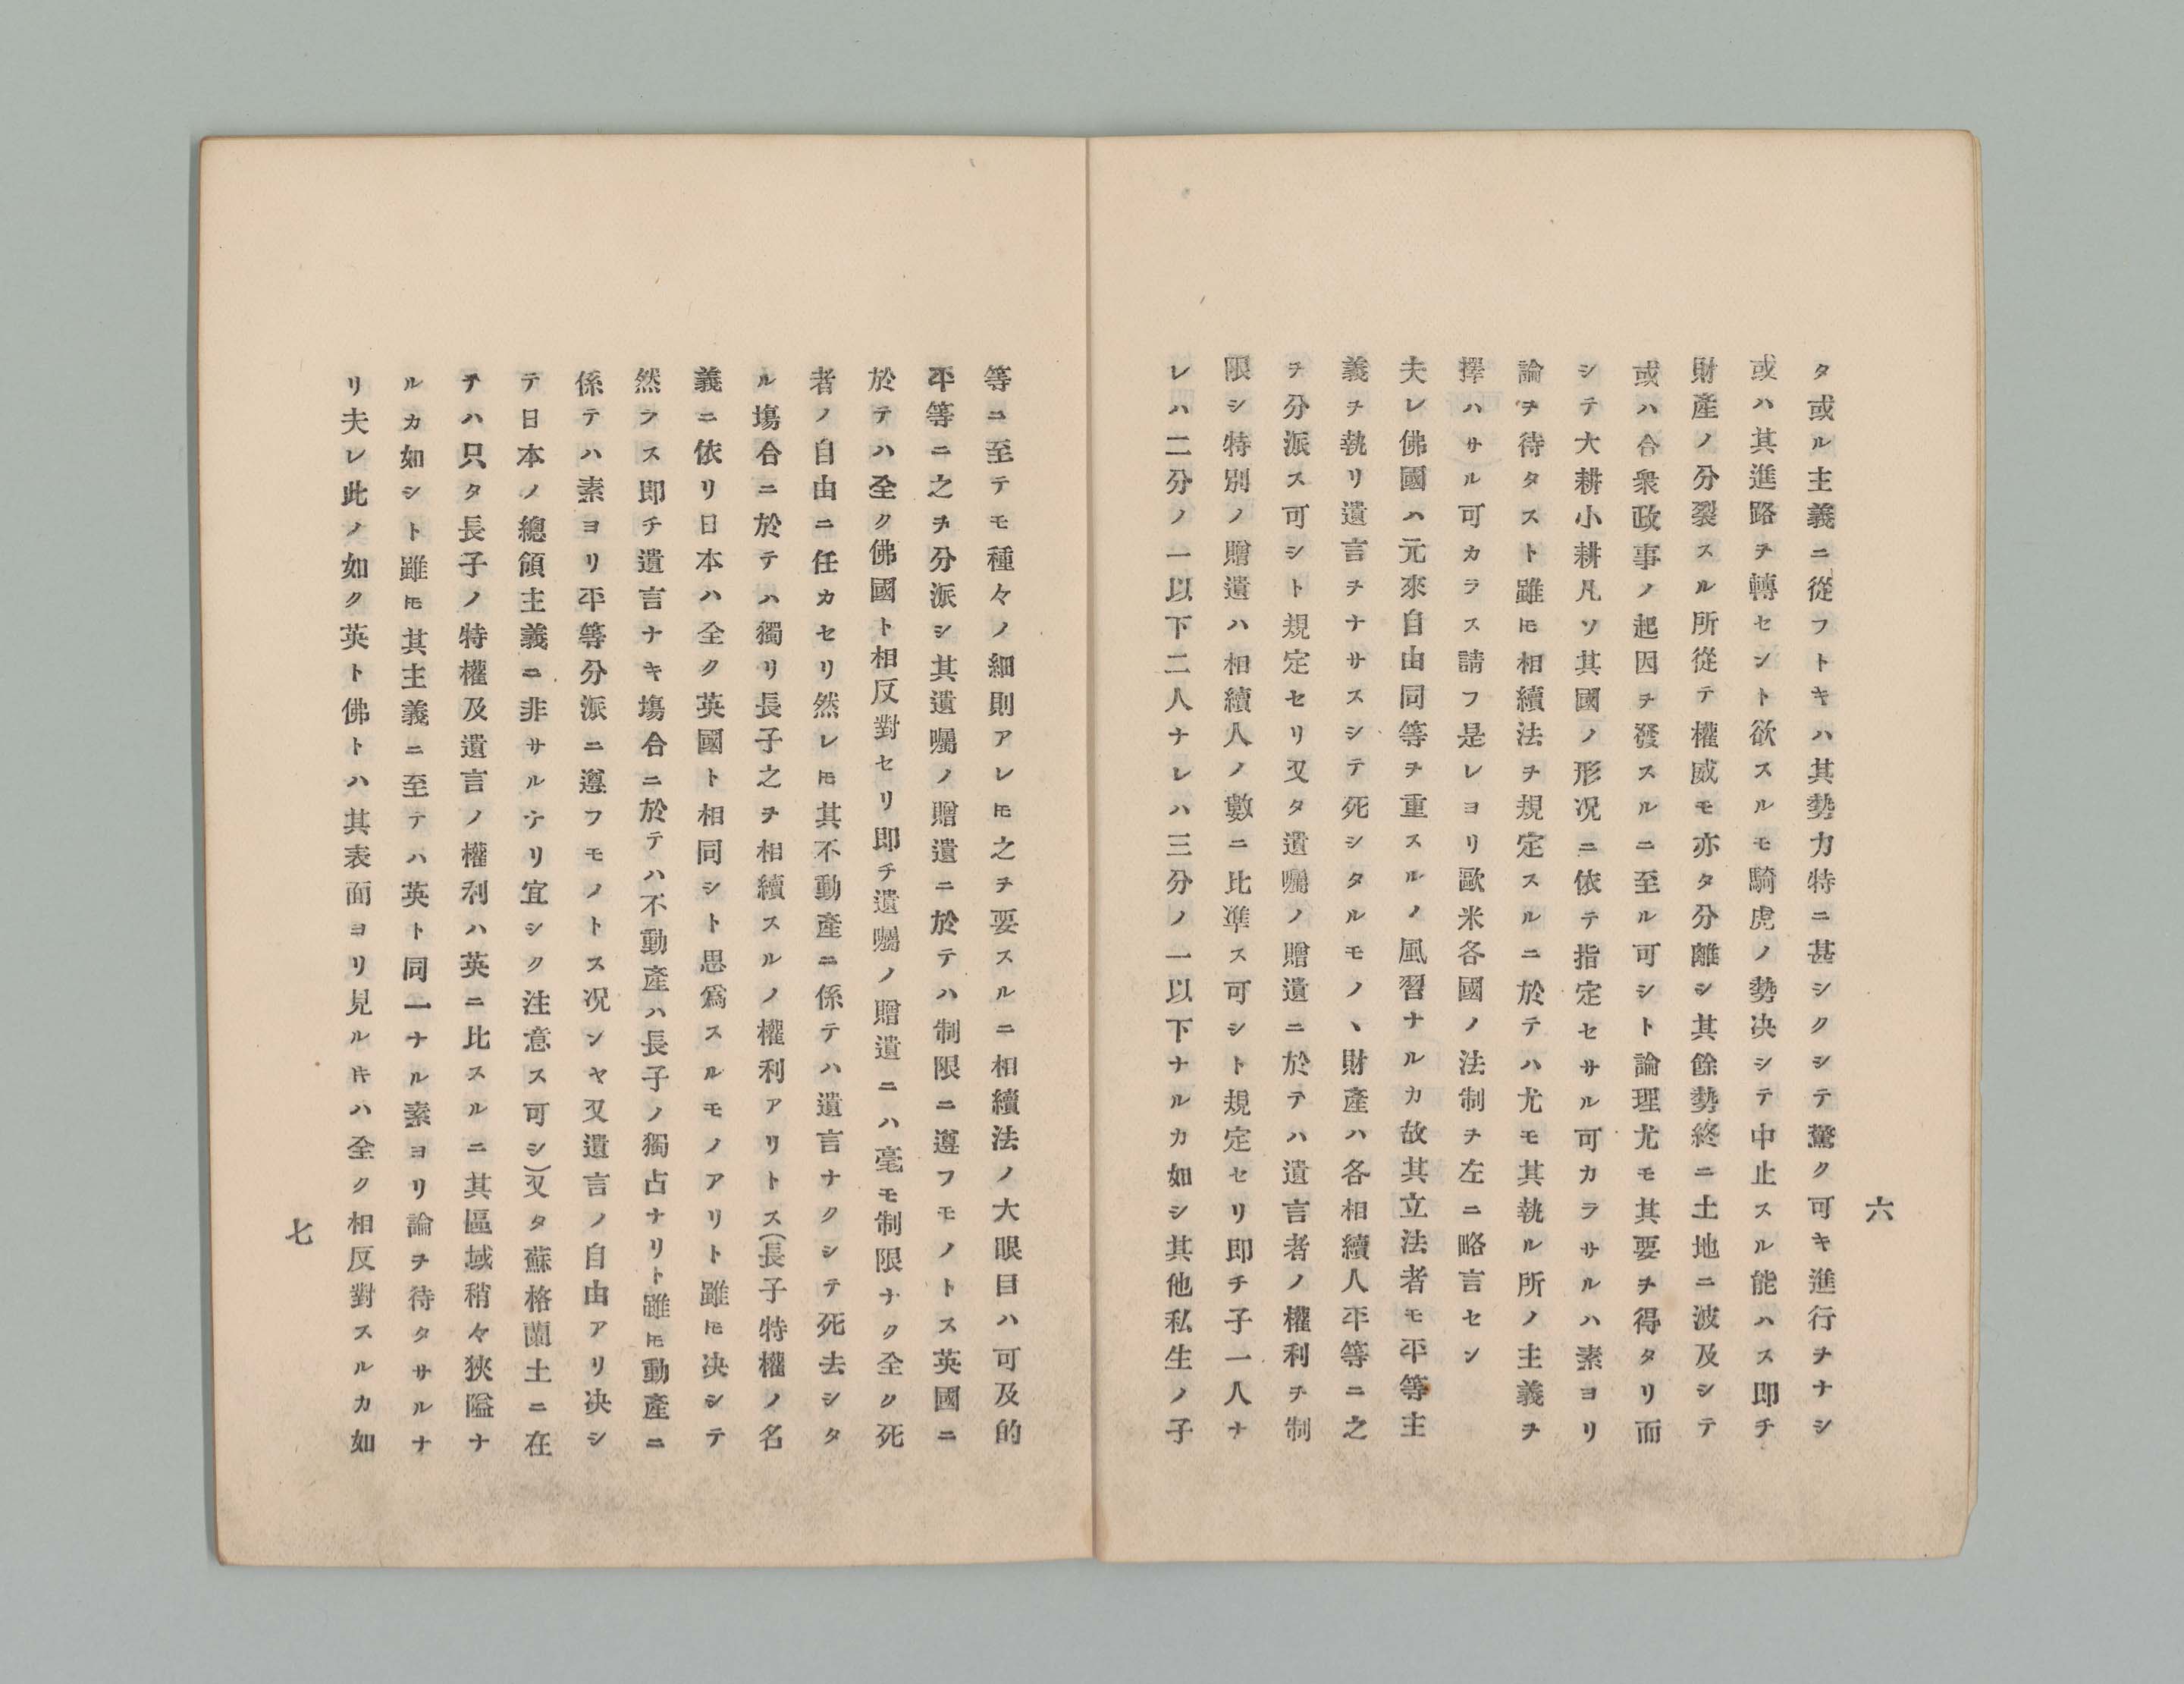 六
タ或ル主義ニ從フトキハ其勢力特ニ甚シクシテ驚ク可キ進行ヲナシ
或ハ其進路ヲ轉セント欲スルモ騎虎ノ勢决シテ中止スル能ハス即チ
財產ノ分裂スル所從テ權威モ亦タ分離シ其餘勢終ニ土地ニ波及シテ
或ハ合衆政事ノ起因ヲ發スルニ至ル可シト論理尤モ其要ヲ得タリ而
シテ大耕小耕凡ソ其國ノ形况ニ依テ指定セサル可カラサルハ素ヨリ
論ヲ待タスト雖𪜈相續法ヲ規定スルニ於テハ尤モ其執ル所ノ主義ヲ
擇ハサル可カラス請フ是レヨリ歐米各國ノ法制ヲ左ニ略言セン
夫レ佛國ハ元來自由同等ヲ重スルノ風習ナルカ故其立法者モ平等主
義ヲ執リ遺言ヲナサスシテ死シタルモノヽ財產ハ各相續人平等ニ之
ヲ分派ス可シト規定セリ又タ遺囑ノ贈遺ニ於テハ遺言者ノ權利ヲ制
限シ特別ノ贈遺ハ相續人ノ數ニ比準ス可シト規定セリ即チ子一人ナ
レハ二分ノ一以下二人ナレハ三分ノ一以下ナルカ如シ其他私生ノ子
等ニ至テモ種々ノ細則アレ𪜈之ヲ要スルニ相續法ノ大眼目ハ可及的
平等ニ之ヲ分派シ其遺囑ノ贈遺ニ於テハ制限ニ遵フモノトス英國ニ
於テハ全ク佛國ト相反對セリ即チ遺囑ノ贈遺ニハ毫モ制限ナク全ク死
者ノ自由ニ任カセリ然レ𪜈其不動產ニ係テハ遺言ナクシテ死去シタ
ル塲合ニ於テハ獨リ長子之ヲ相續スルノ權利アリトス(長子特權ノ名
義ニ依リ日本ハ全ク英國ト相同シト思爲スルモノアリト雖𪜈决シテ
然ラス即チ遺言ナキ塲合ニ於テハ不動產ハ長子ノ獨占ナリト雖𪜈動產ニ
係テハ素ヨリ平等分派ニ遵フモノトス况ンヤ又遺言ノ自由アリ决シ
テ日本ノ總領主義ニ非サルヿリ宜シク注意ス可シ)又タ蘇格蘭土ニ在
テハ只タ長子ノ特權及遺言ノ權利ハ英ニ比スルニ其區域稍々狹隘ナ
ルカ如シト雖𪜈其主義ニ至テハ英ト同一ナル素ヨリ論ヲ待タサルナ
リ夫レ此ノ如ク英ト佛トハ其表面ヨリ見ル𪜈ハ全ク相反對スルカ如
七